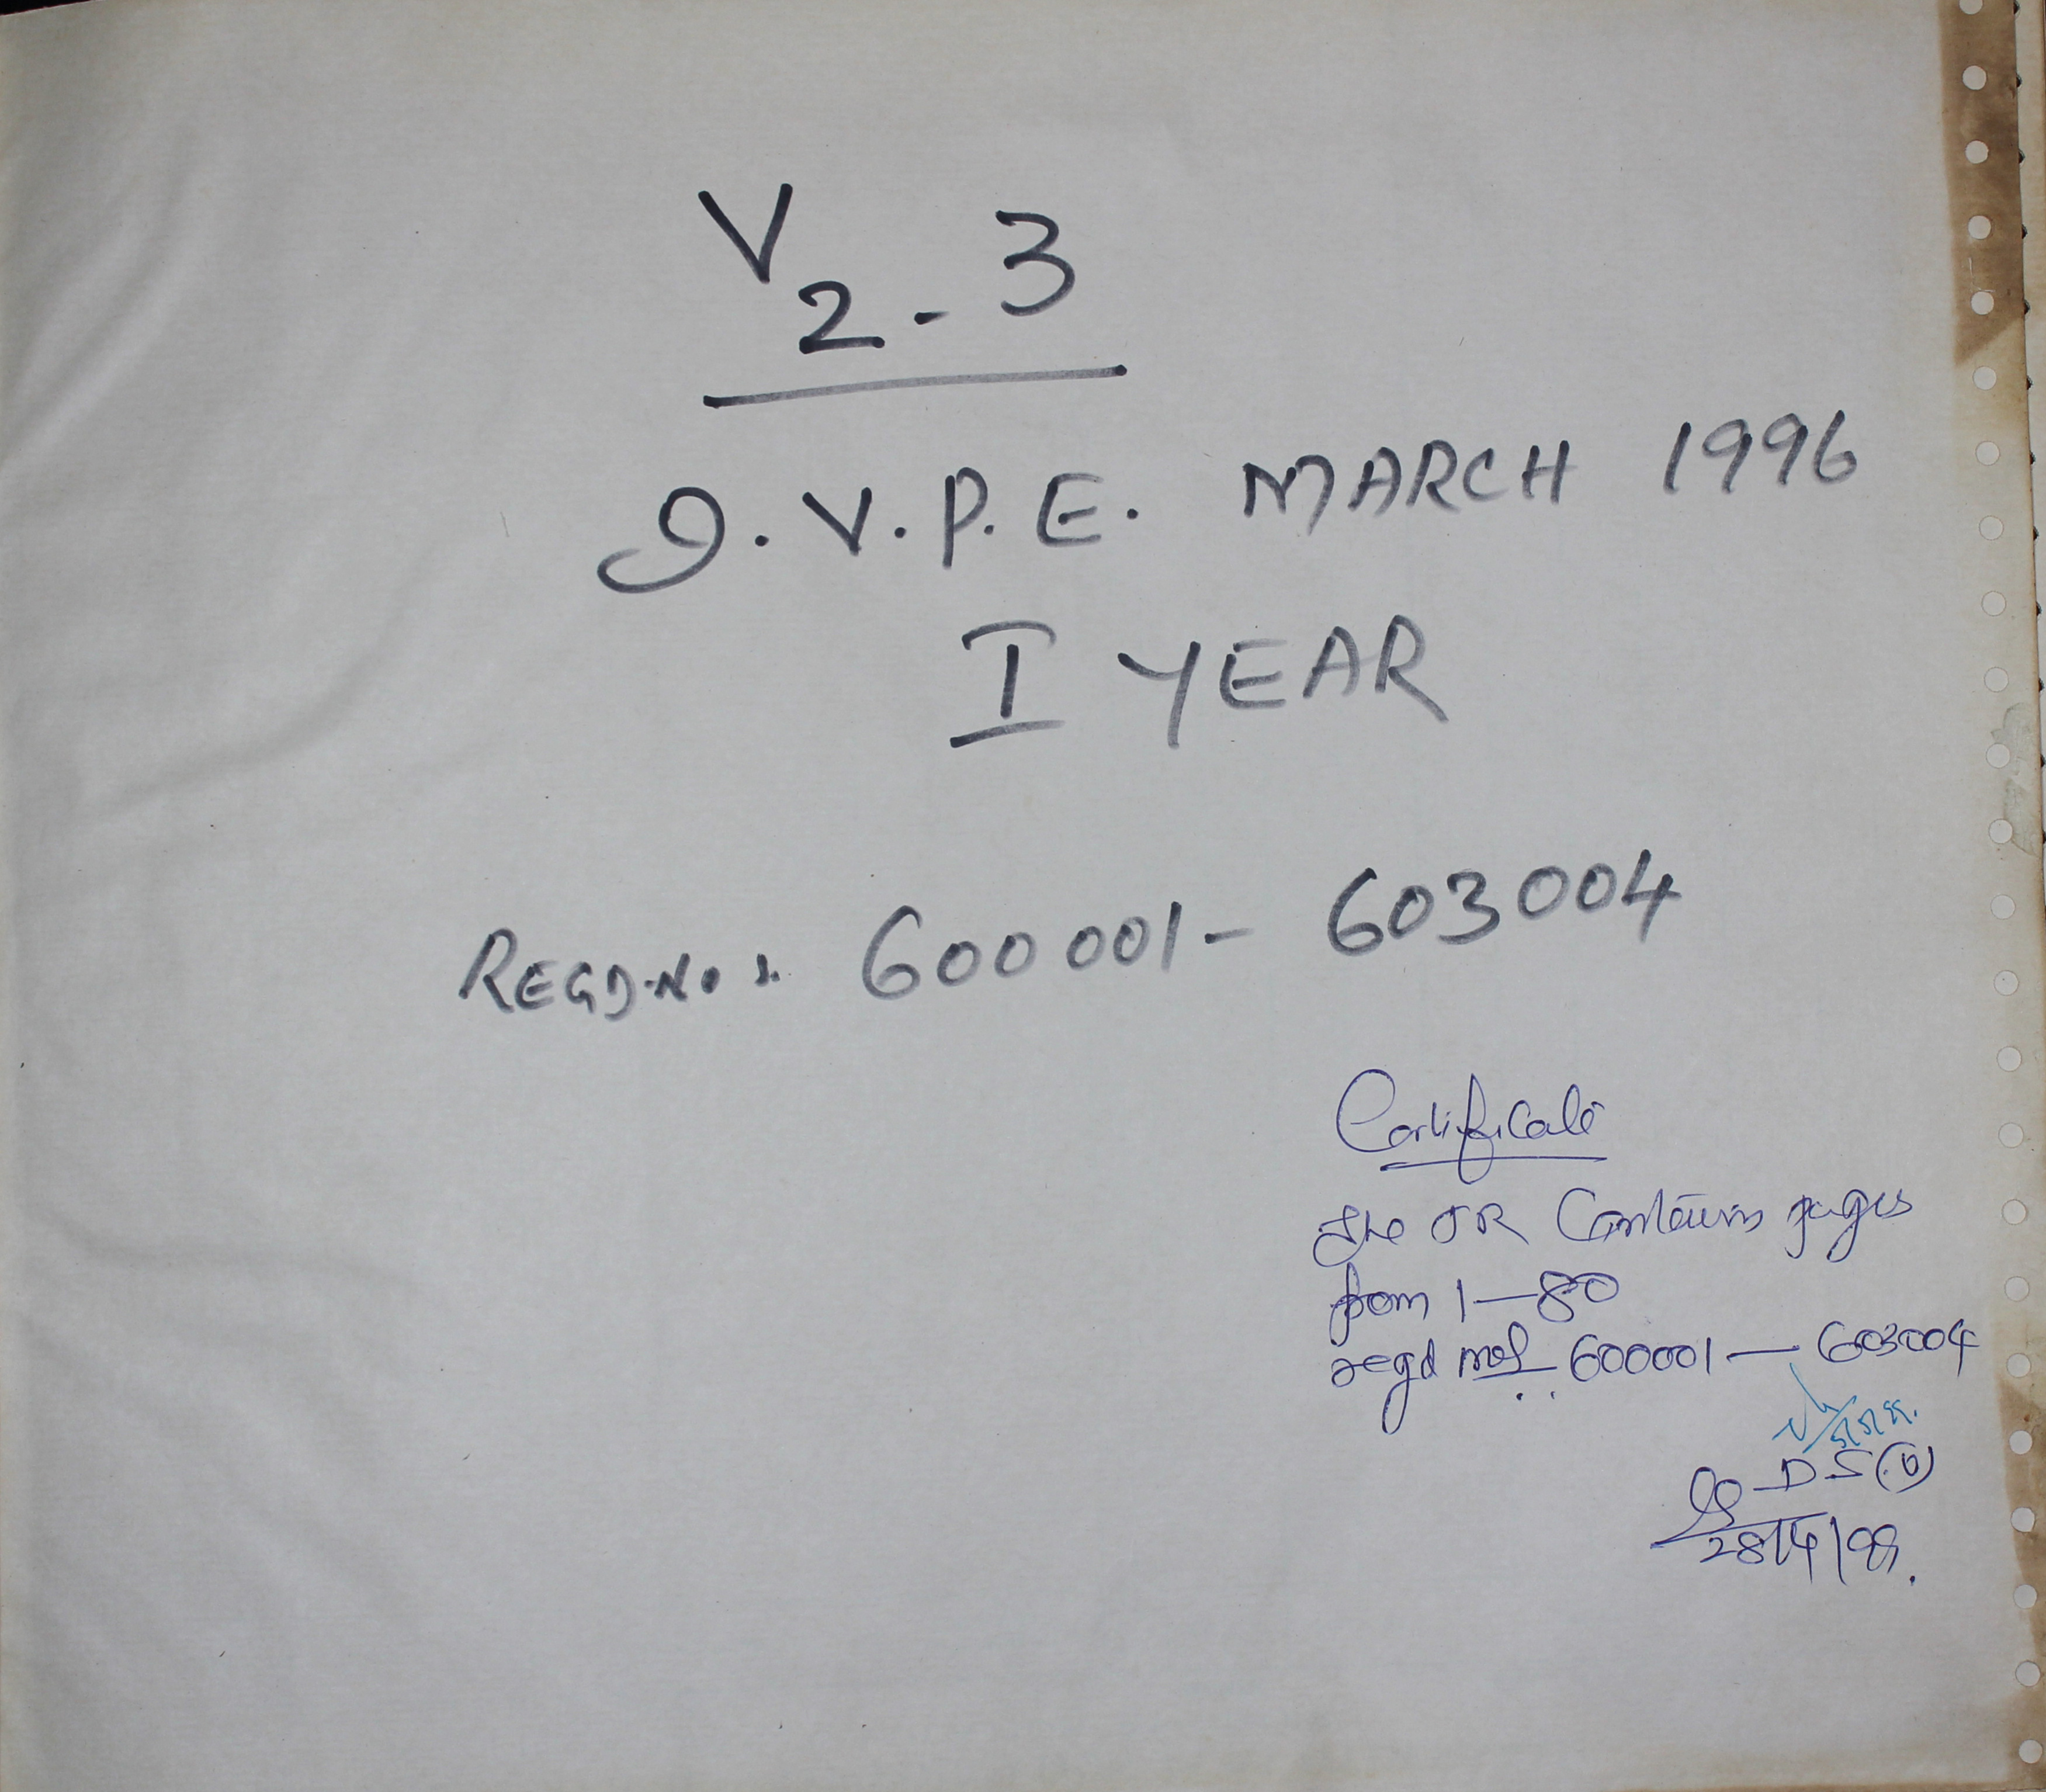 V2-3
I.V.P.E. MARCH 1996
I YEAR
REGD.No: 600001- 603004
Certificate
The TR Contains pages
from 1-80
regd nos 600001-603004
DS(V)
28/4/98.